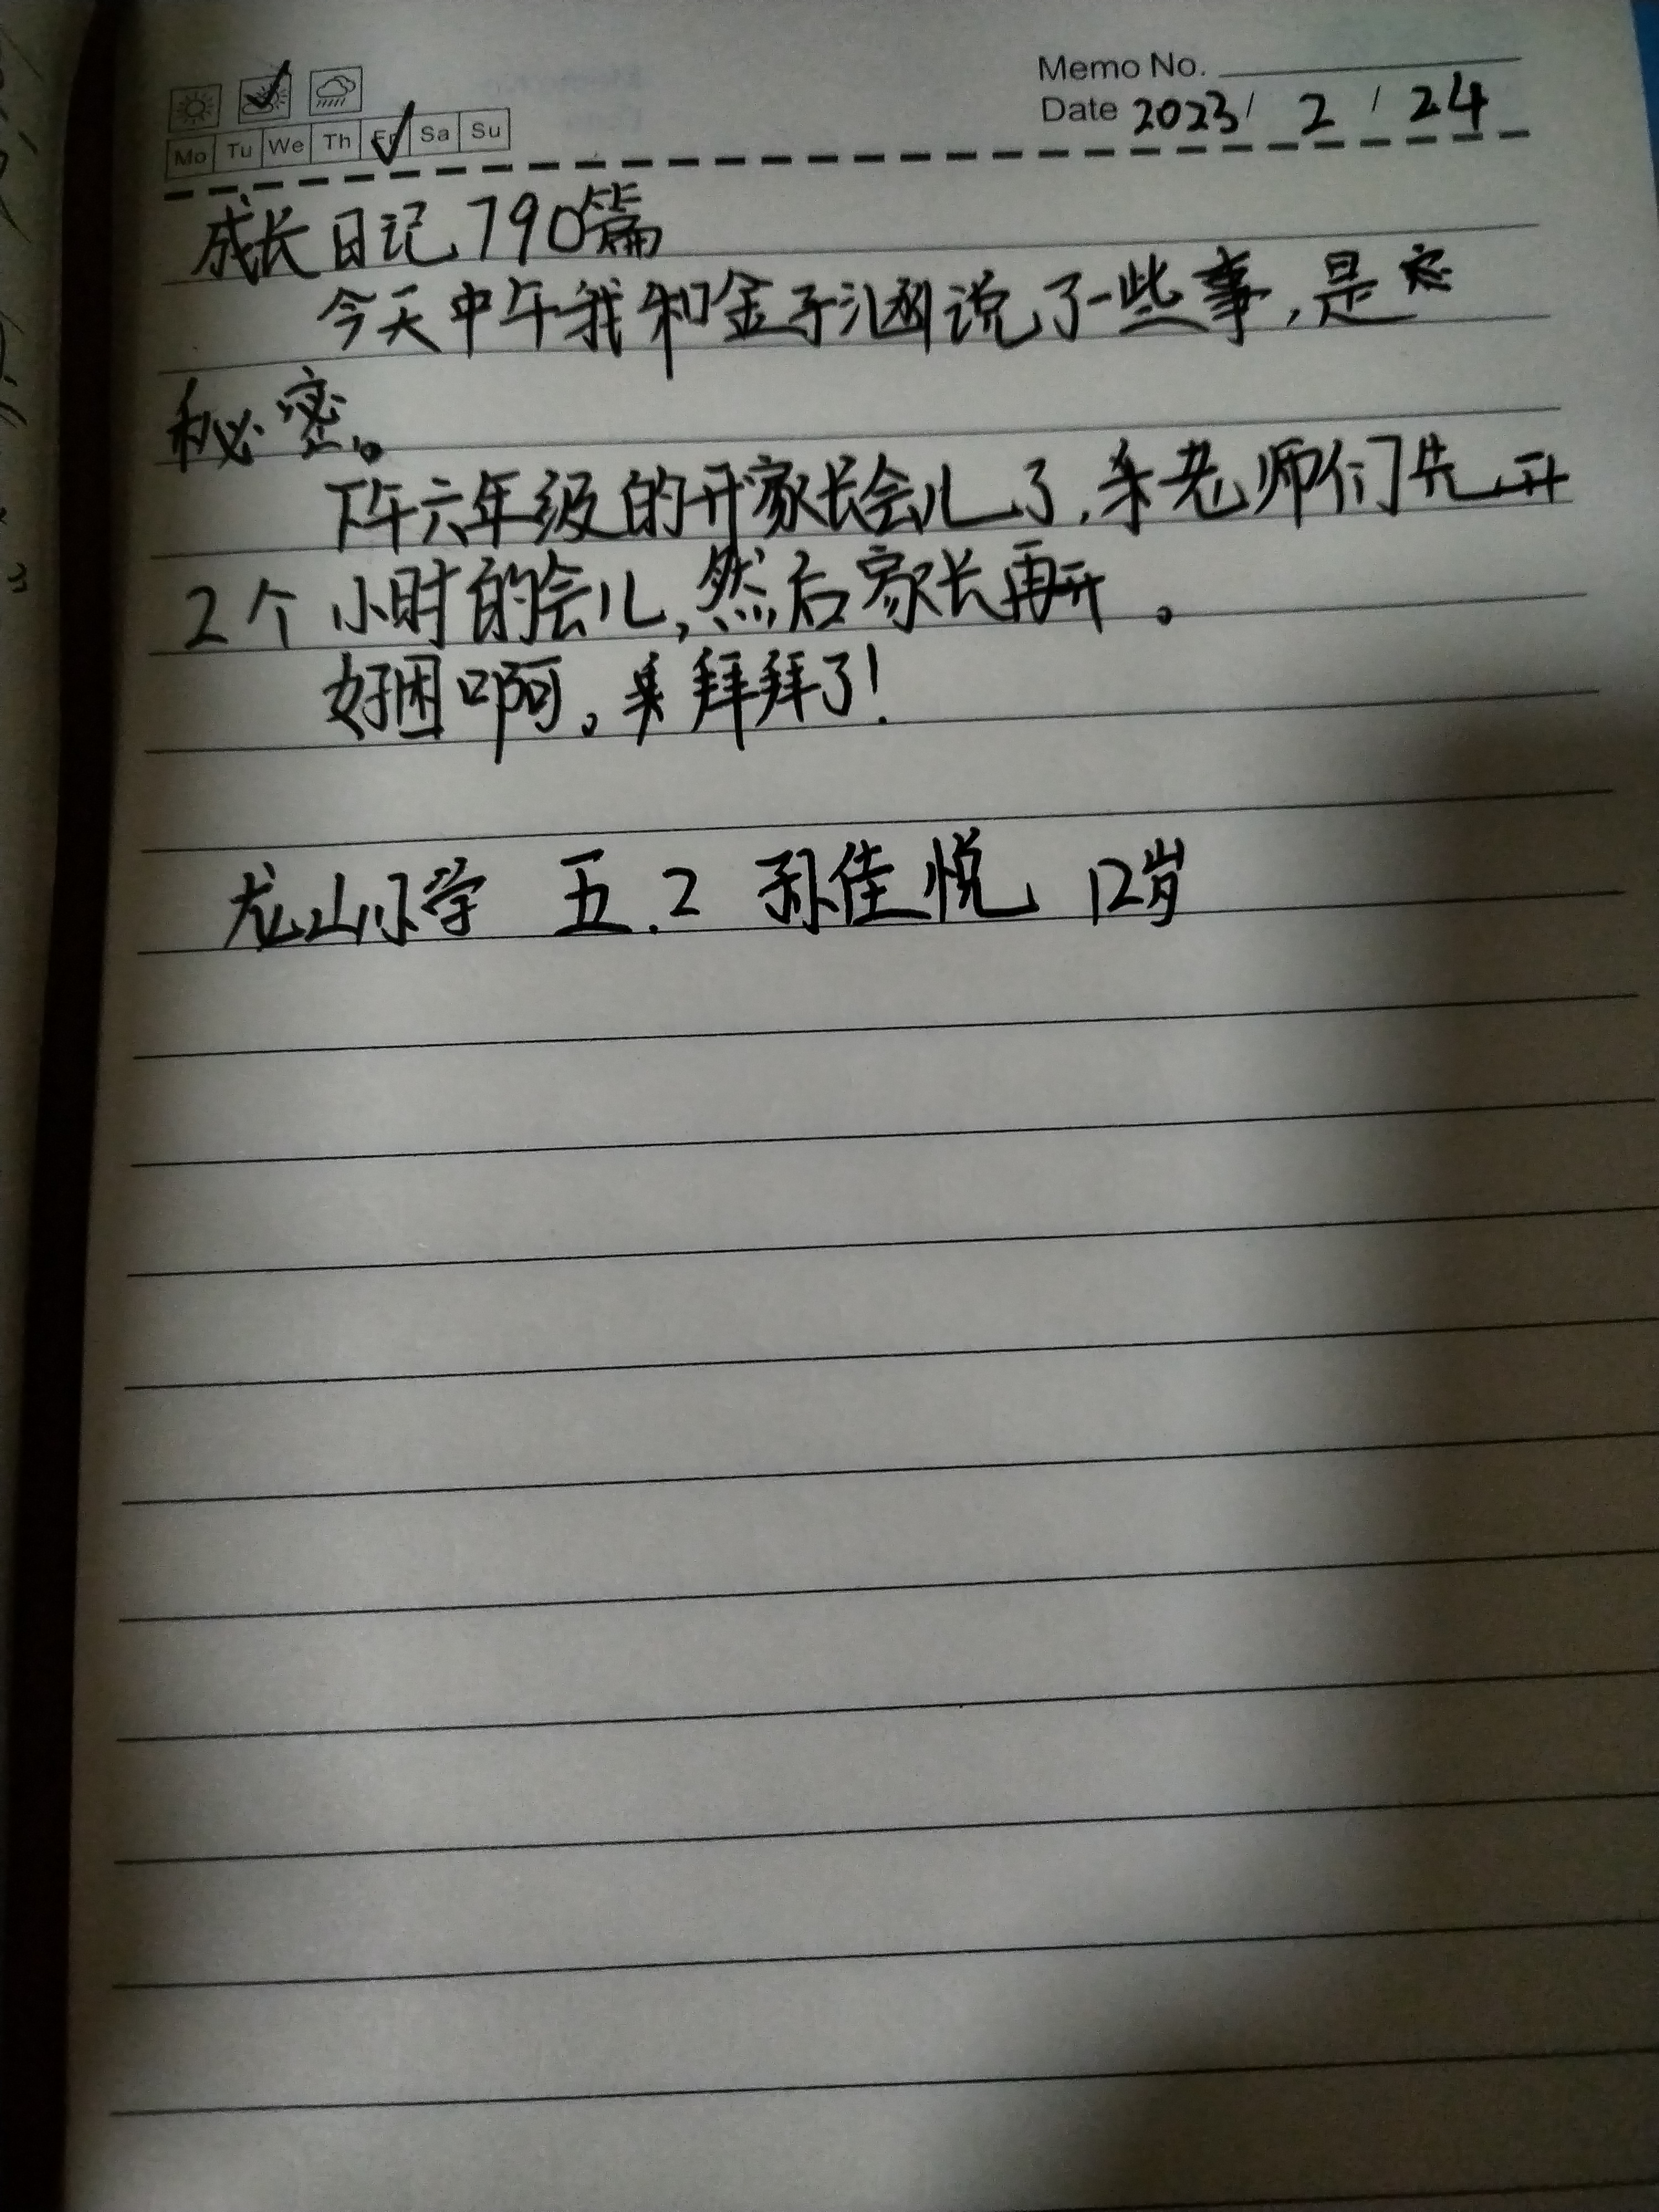 Memo No.
Mo Tu We Th Fr Sa Su
Date 2023 / 2 / 24
成长日记790篇
今天中午我和金子涵说了一些事,是
秘密。
下午六年级的开家长会儿了,老师们先开
2个小时的会儿,然后家长再开。
好困啊。拜拜了!
龙山小学 五.2 孙佳悦 12岁